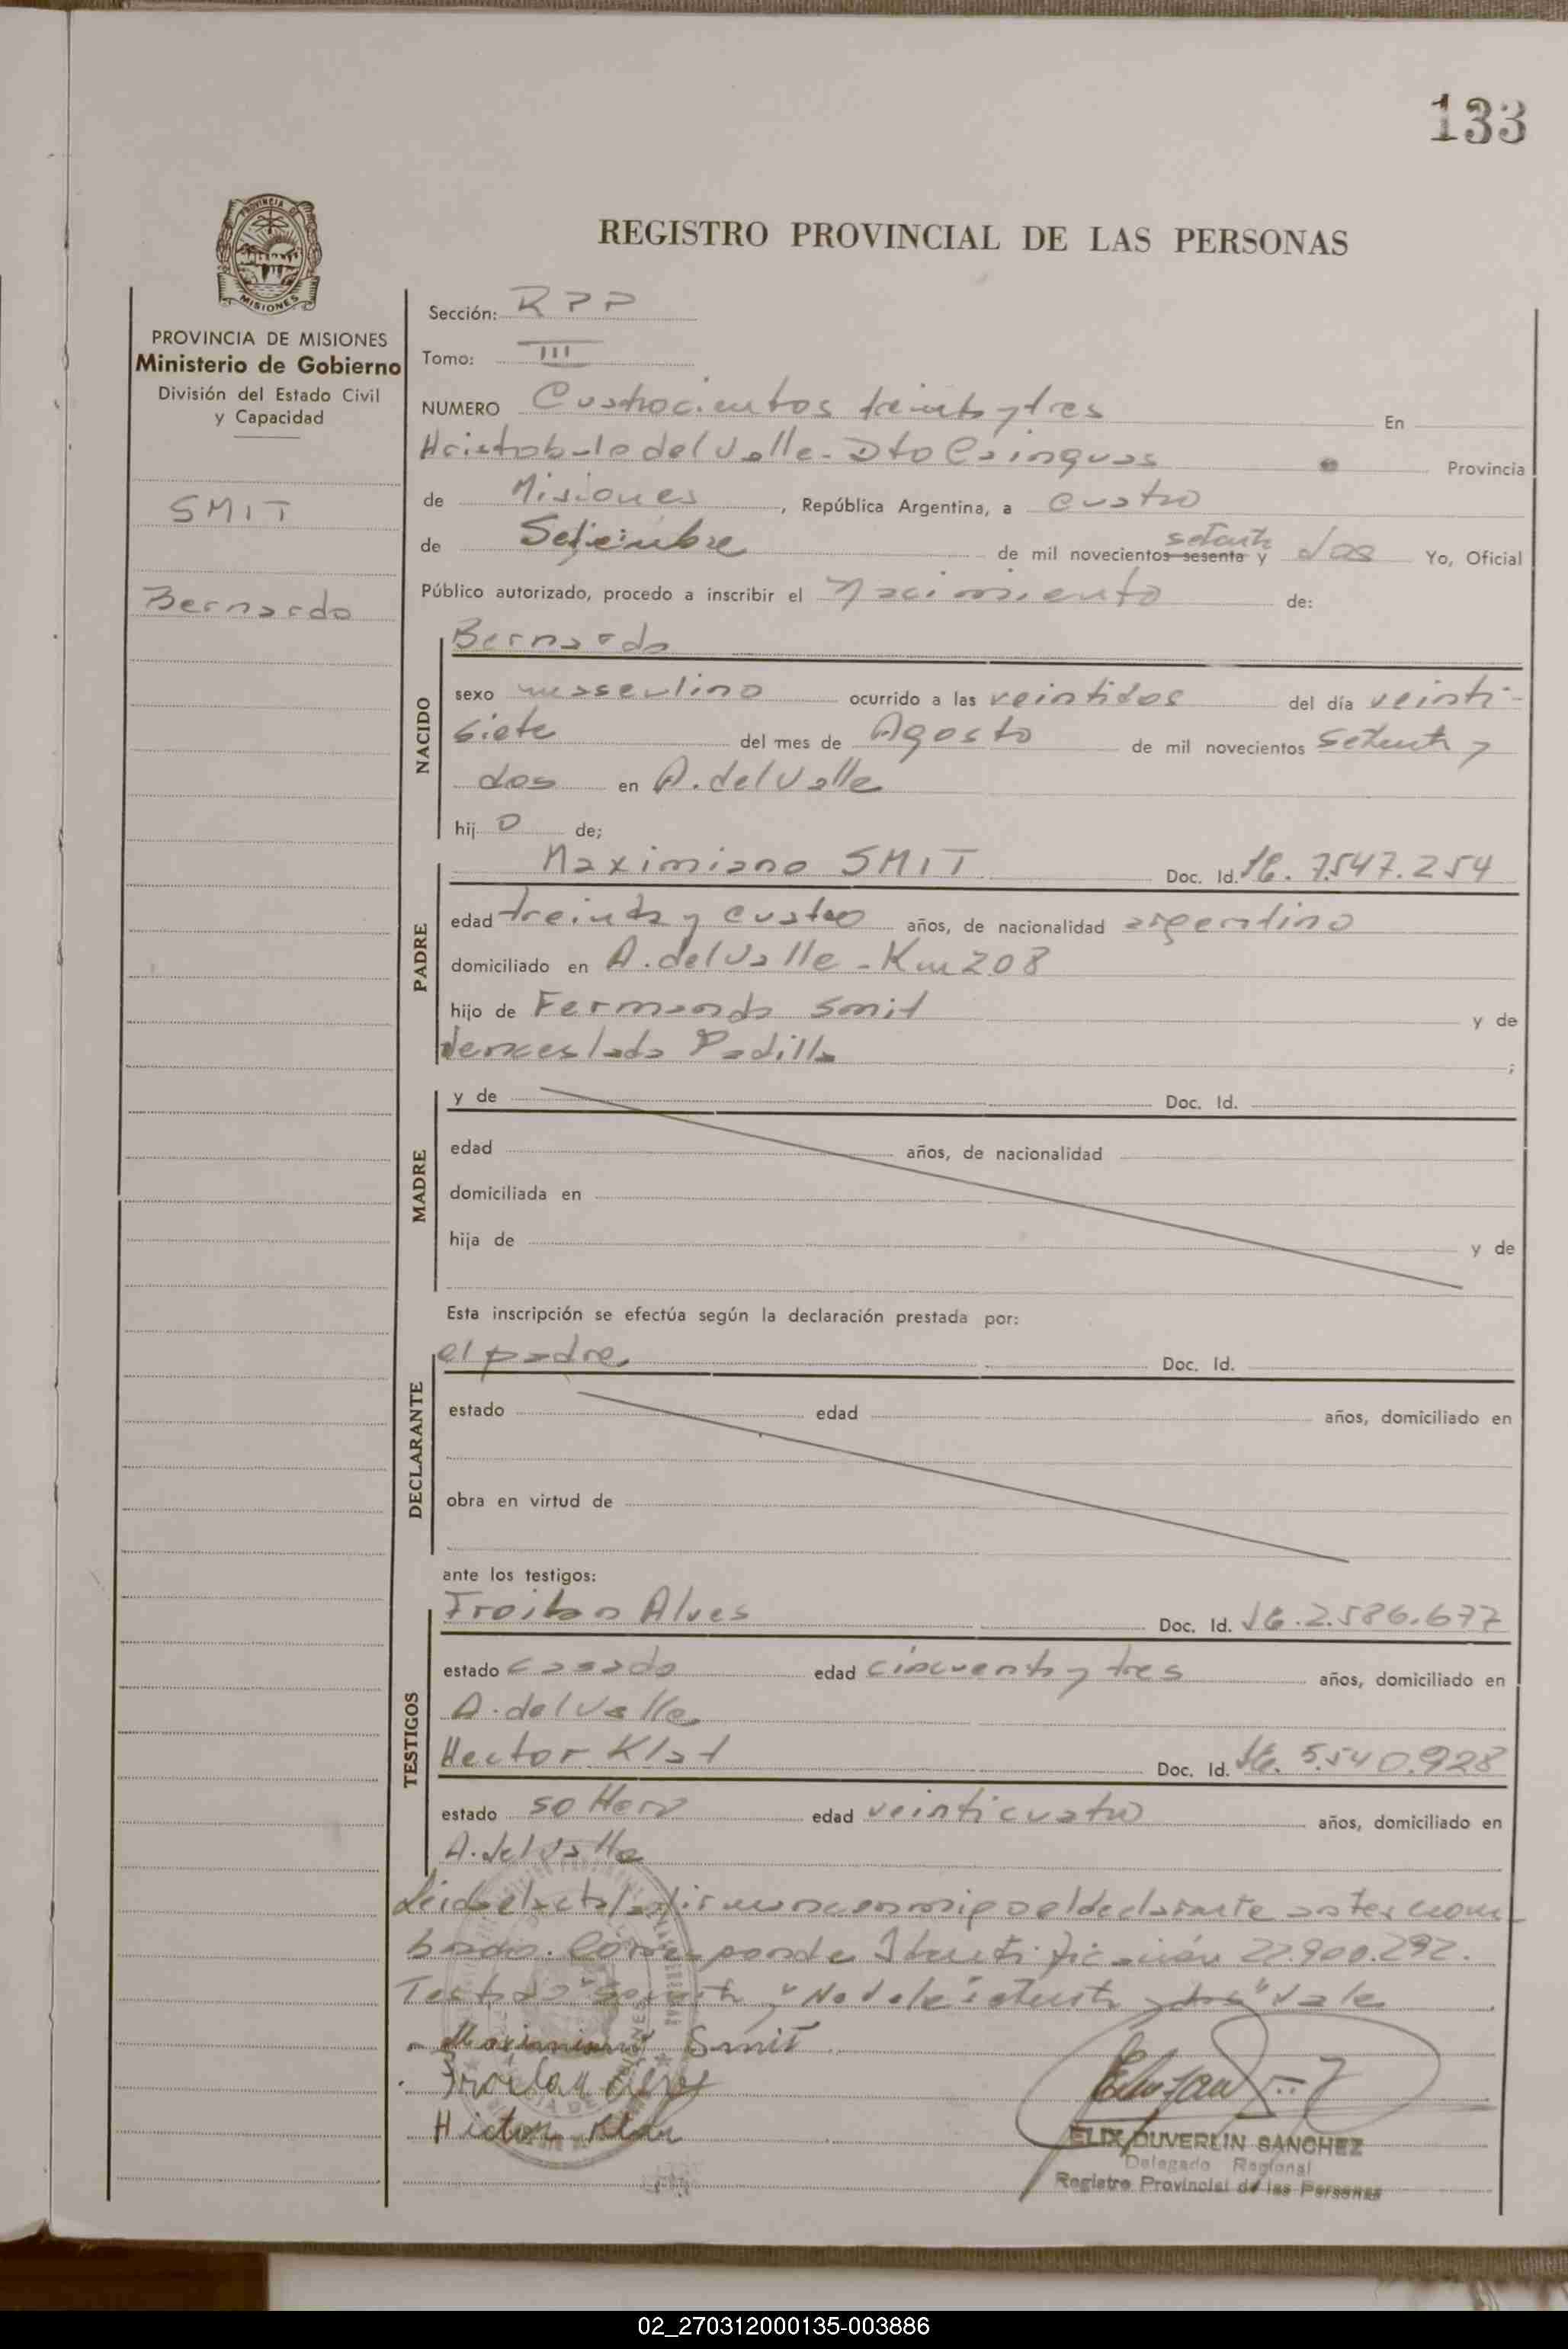 133
REGISTRO PROVINCIAL DE LAS PERSONAS
PROVINCIA
MISIONES
PROVINCIA DE MISIONES
Ministerio de Gobierno
División del Estado Civil
y Capacidad
SMIT
Bernardo
Sección: RPP
Tomo: III
NUMERO Cuatrocientos treinta y tres En
Aristobulo del Valle - Dto Cainguas Provincia
de Misiones, República Argentina, a cuatro
de Setiembre de mil novecientos sesenta setenta y dos Yo, Oficial
Público autorizado, procedo a inscribir el Nacimiento de:
NACIDO
Bernardo
sexo masculino ocurrido a las veintidos del día veinti-
siete del mes de Agosto de mil novecientos setenta y
dos en A. del Valle
hijo de;
PADRE
Maximiano SMIT Doc. Id. 7.547.254
edad treinta y cuatro años, de nacionalidad argentino
domiciliado en A. del Valle - Km 208
hijo de Fernando Smit y de
Padilla ;
MADRE
y de Doc. Id.
edad años, de nacionalidad
domiciliada en
hija de y de
Esta inscripción se efectúa según la declaración prestada por:
DECLARANTE
el padre Doc. Id.
estado edad años, domiciliado en
obra en virtud de
ante los testigos:
TESTIGOS
Froilan Alves Doc. Id. 2.586.677
estado casado edad cincuenta y tres años, domiciliado en
A. del Valle
Hector Klat Doc. Id. 5.540.928
estado soltero edad veinticuatro años, domiciliado en
A. del Valle
Leida el acta la firman conmigo el declarante antes nom-
brado. Corresponde Identificación 22.900.292.
Testado "sesenta y" No vale "setenta y dos" Vale
Maximiano Smit
Froilan Alves
Hector Klat
ELIX DUVERLIN SANCHEZ
Delegado Regional
Registro Provincial de las Personas
02_270312000135-003886